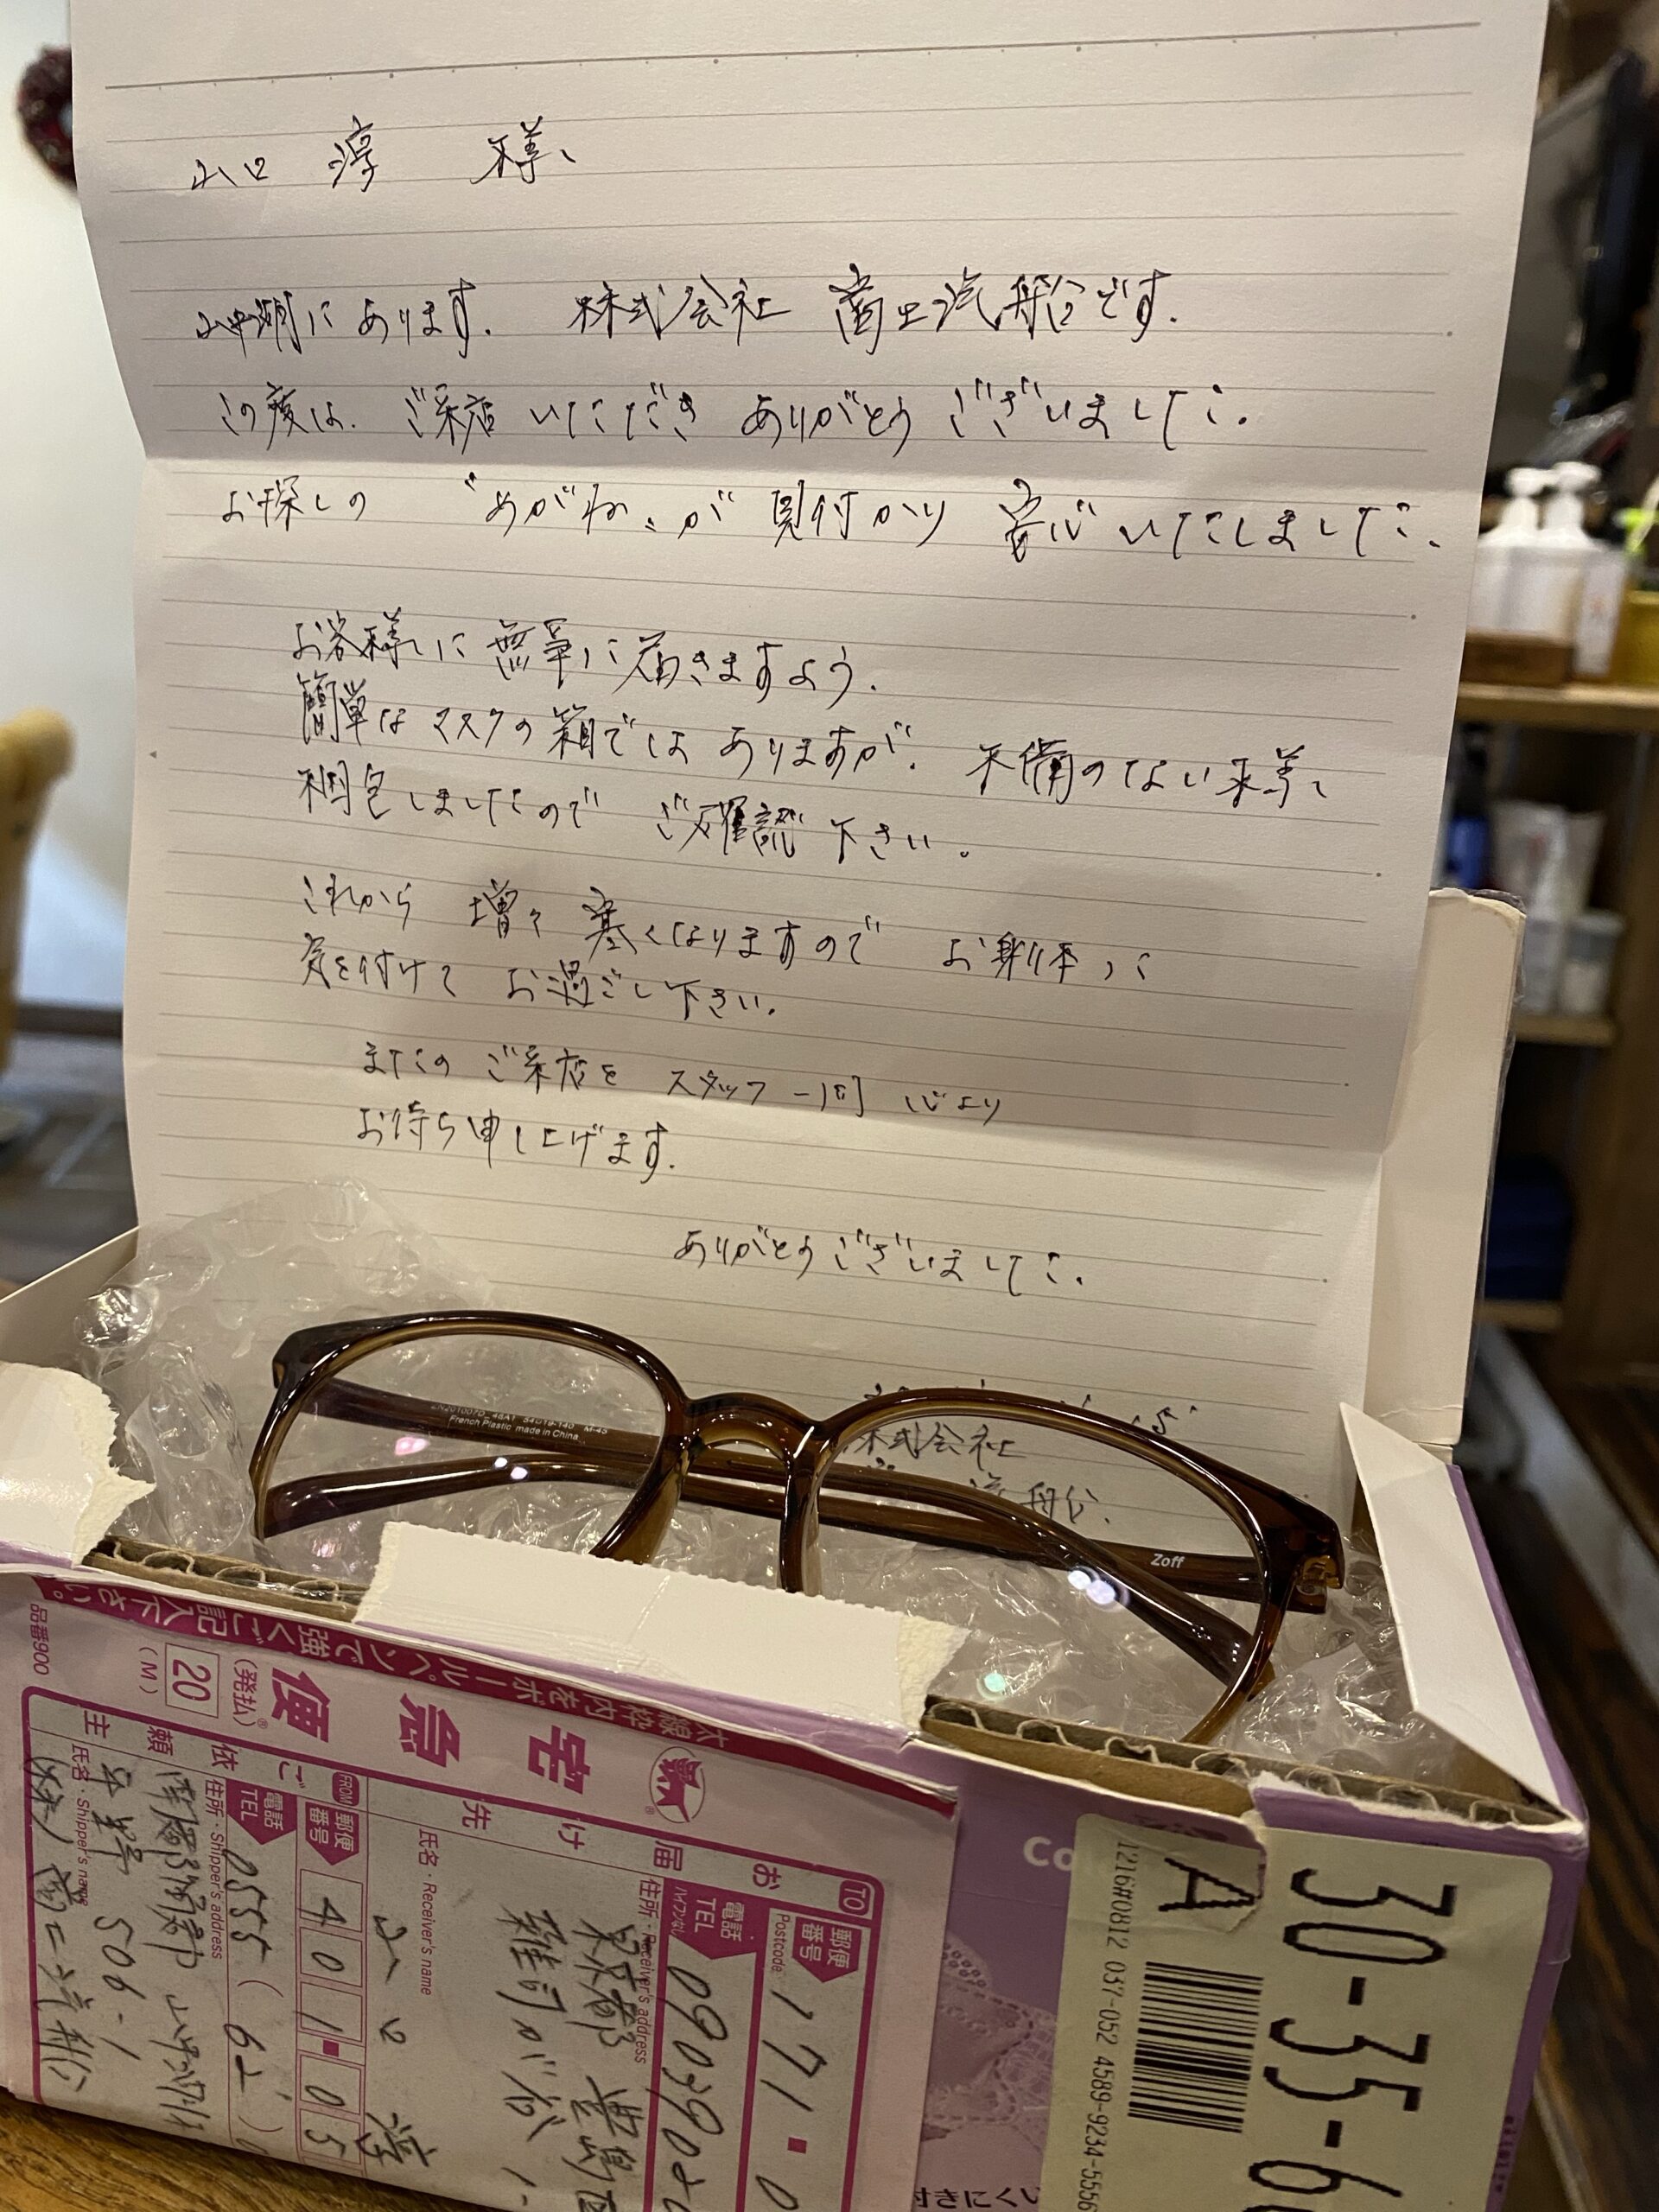 山口 淳 様、
山中湖にあります。 株式会社 富士汽船です。
この度は、ご来店いただき ありがとうございました。
お探しの “めがね〟が 見付かり 安心いたしました。
お客様に無事に届きますよう。
簡単なマスクの箱ではありますが、不備のない様
梱包しましたので ご確認下さい。
これから 増々 寒くなりますので お身体に
気を付けて お過ごし下さい。
またの ご来店を スタッフ一同 心より
お待ち申し上げます。
ありがとうございました。
株式会社
汽船
French Plastic made in China
Zoff
太線枠内をボールペンで強くご記入下さい。
品番900
宅急便
(発払)
20
(M)
お届け先
TO
郵便番号
Postcode
171-0
電話 TEL
0903902
住所・Receiver's address
東京都 豊島区
雑司が谷 1-
氏名・Receiver's name
山口 淳
ご依頼主
FROM
郵便番号
401-05
電話 TEL
0555(62)0
住所・Shipper's address
南都留郡 山中湖村
平野 506-1
氏名・Shipper's name
(株)富士汽船
30-35-6
A
1216#0812 037-052 4589-9234-5556
Co